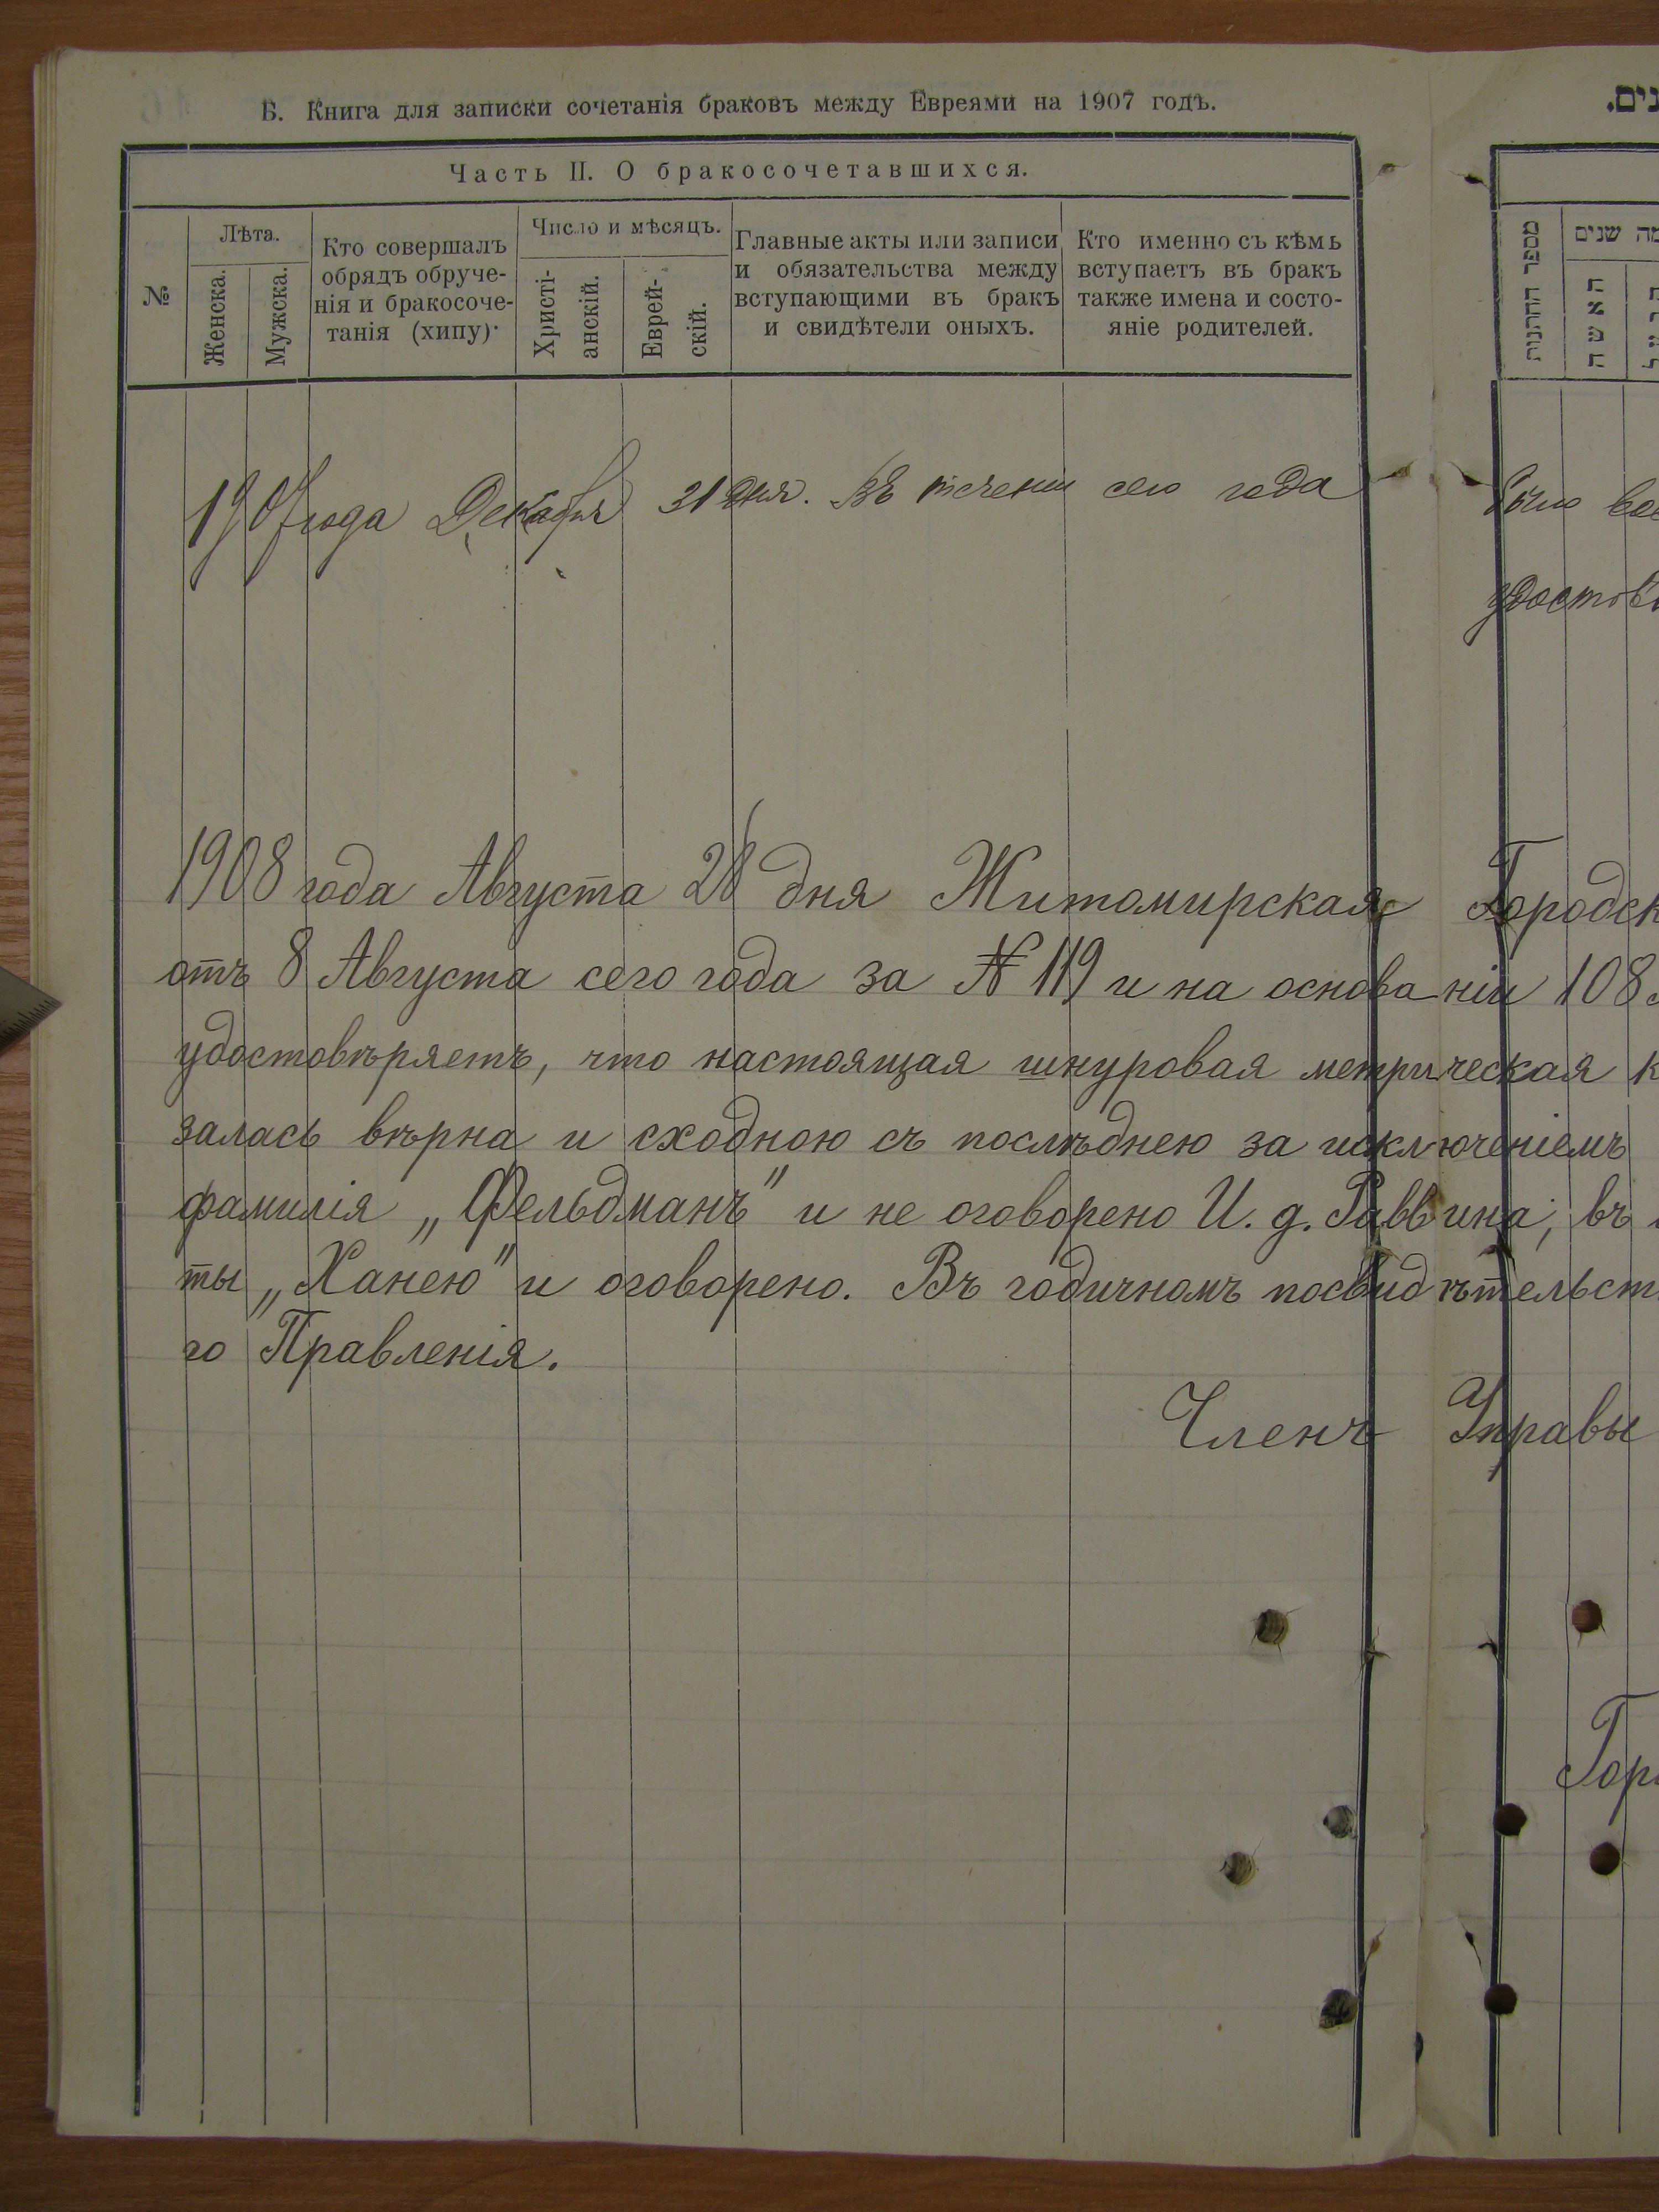 Б. Книга для записки сочетанія браковъ между Евреями на 1907 годъ.
Часть II. О бракосочетавшихся.
№
Лѣта.
Женска.
Мужска.
Кто совершалъ
обрядъ обруче-
нія и бракосоче-
танія (хипу).
Число и мѣсяцъ.
Христі-
анскій.
Еврей-
скій.
Главные акты или записи
и обязательства между
вступающими въ бракъ
и свидѣтели оныхъ.
Кто именно съ кѣмъ
вступаетъ въ бракъ
также имена и состо-
яніе родителей.
נים.
מספר החתונות
מה שנים
האשה
1907 года Декабря 31 дня. Въ теченіи сего года было
удостов
1908 года Августа 28 дня Житомирская Городск
отъ 8 Августа сего года за № 119 и на основаніи 108
удостовѣряетъ, что настоящая шнуровая метрическая к
залась вѣрна и сходною съ послѣднею за исключеніемъ
фамилія „Фельдманъ" и не оговорено И. д. Раввина, въ
ты „Ханею" и оговорено. Въ годичномъ посвидѣтельст
го Правленія.
Членъ Управы
Гор